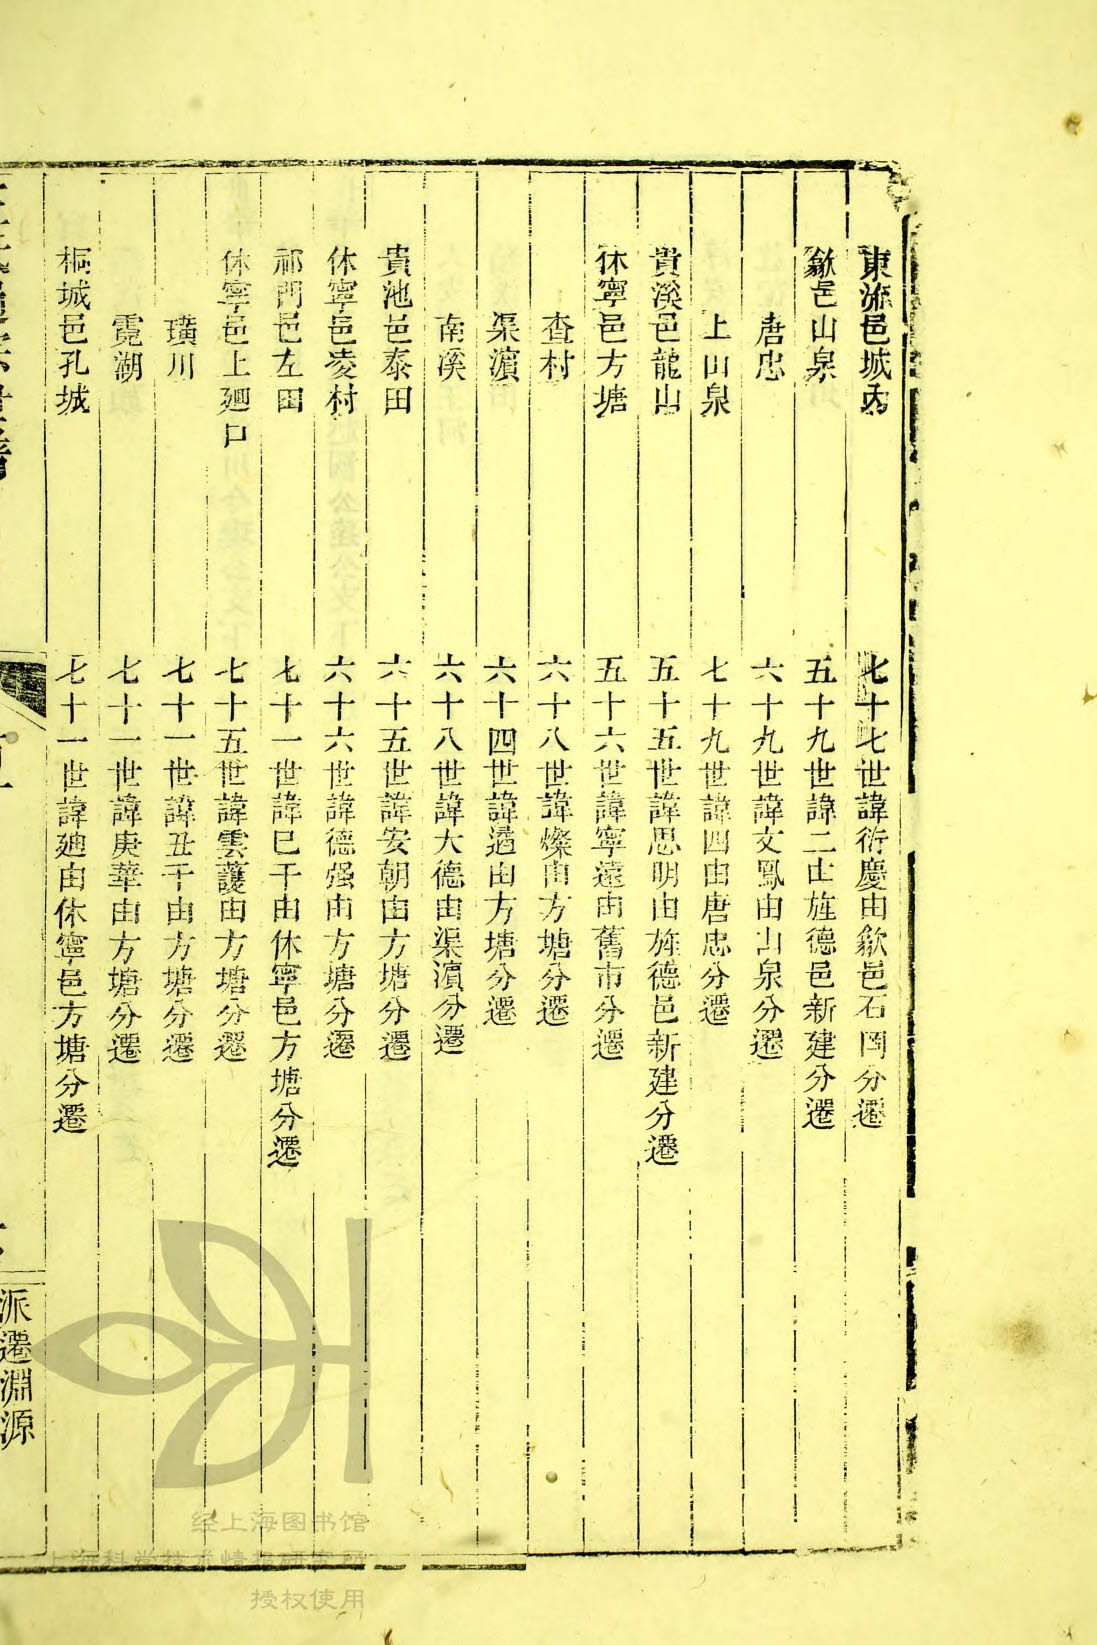 東流邑城內　七十七世諱衍慶由歙邑石岡分遷
歙邑山泉　五十九世諱二由旌德邑新建分遷
唐忠　六十九世諱文鳳由山泉分遷
上山泉　七十九世諱四由唐忠分遷
貴溪邑龍山　五十五世諱思明由旌德邑新建分遷
休寧邑方塘　五十六世諱寧遠由舊市分遷
查村　六十八世諱燦由方塘分遷
渠濵　六十四世諱遹由方塘分遷
南溪　六十八世諱大德由渠濵分遷
貴池邑泰田　六十五世諱安朝由方塘分遷
休寧邑凌村　六十六世諱德强由方塘分遷
祁門邑左田　七十一世諱巳千由休寧邑方塘分遷
休寧邑上廻口　七十五世諱雲護由方塘分遷
璜川　七十一世諱丑千由方塘分遷
霓湖　七十一世諱庚華由方塘分遷
桐城邑孔城　七十一世諱廻由休寧邑方塘分遷
派遷淵源
经上海图书馆
上海科学技术情报研究所
授权使用